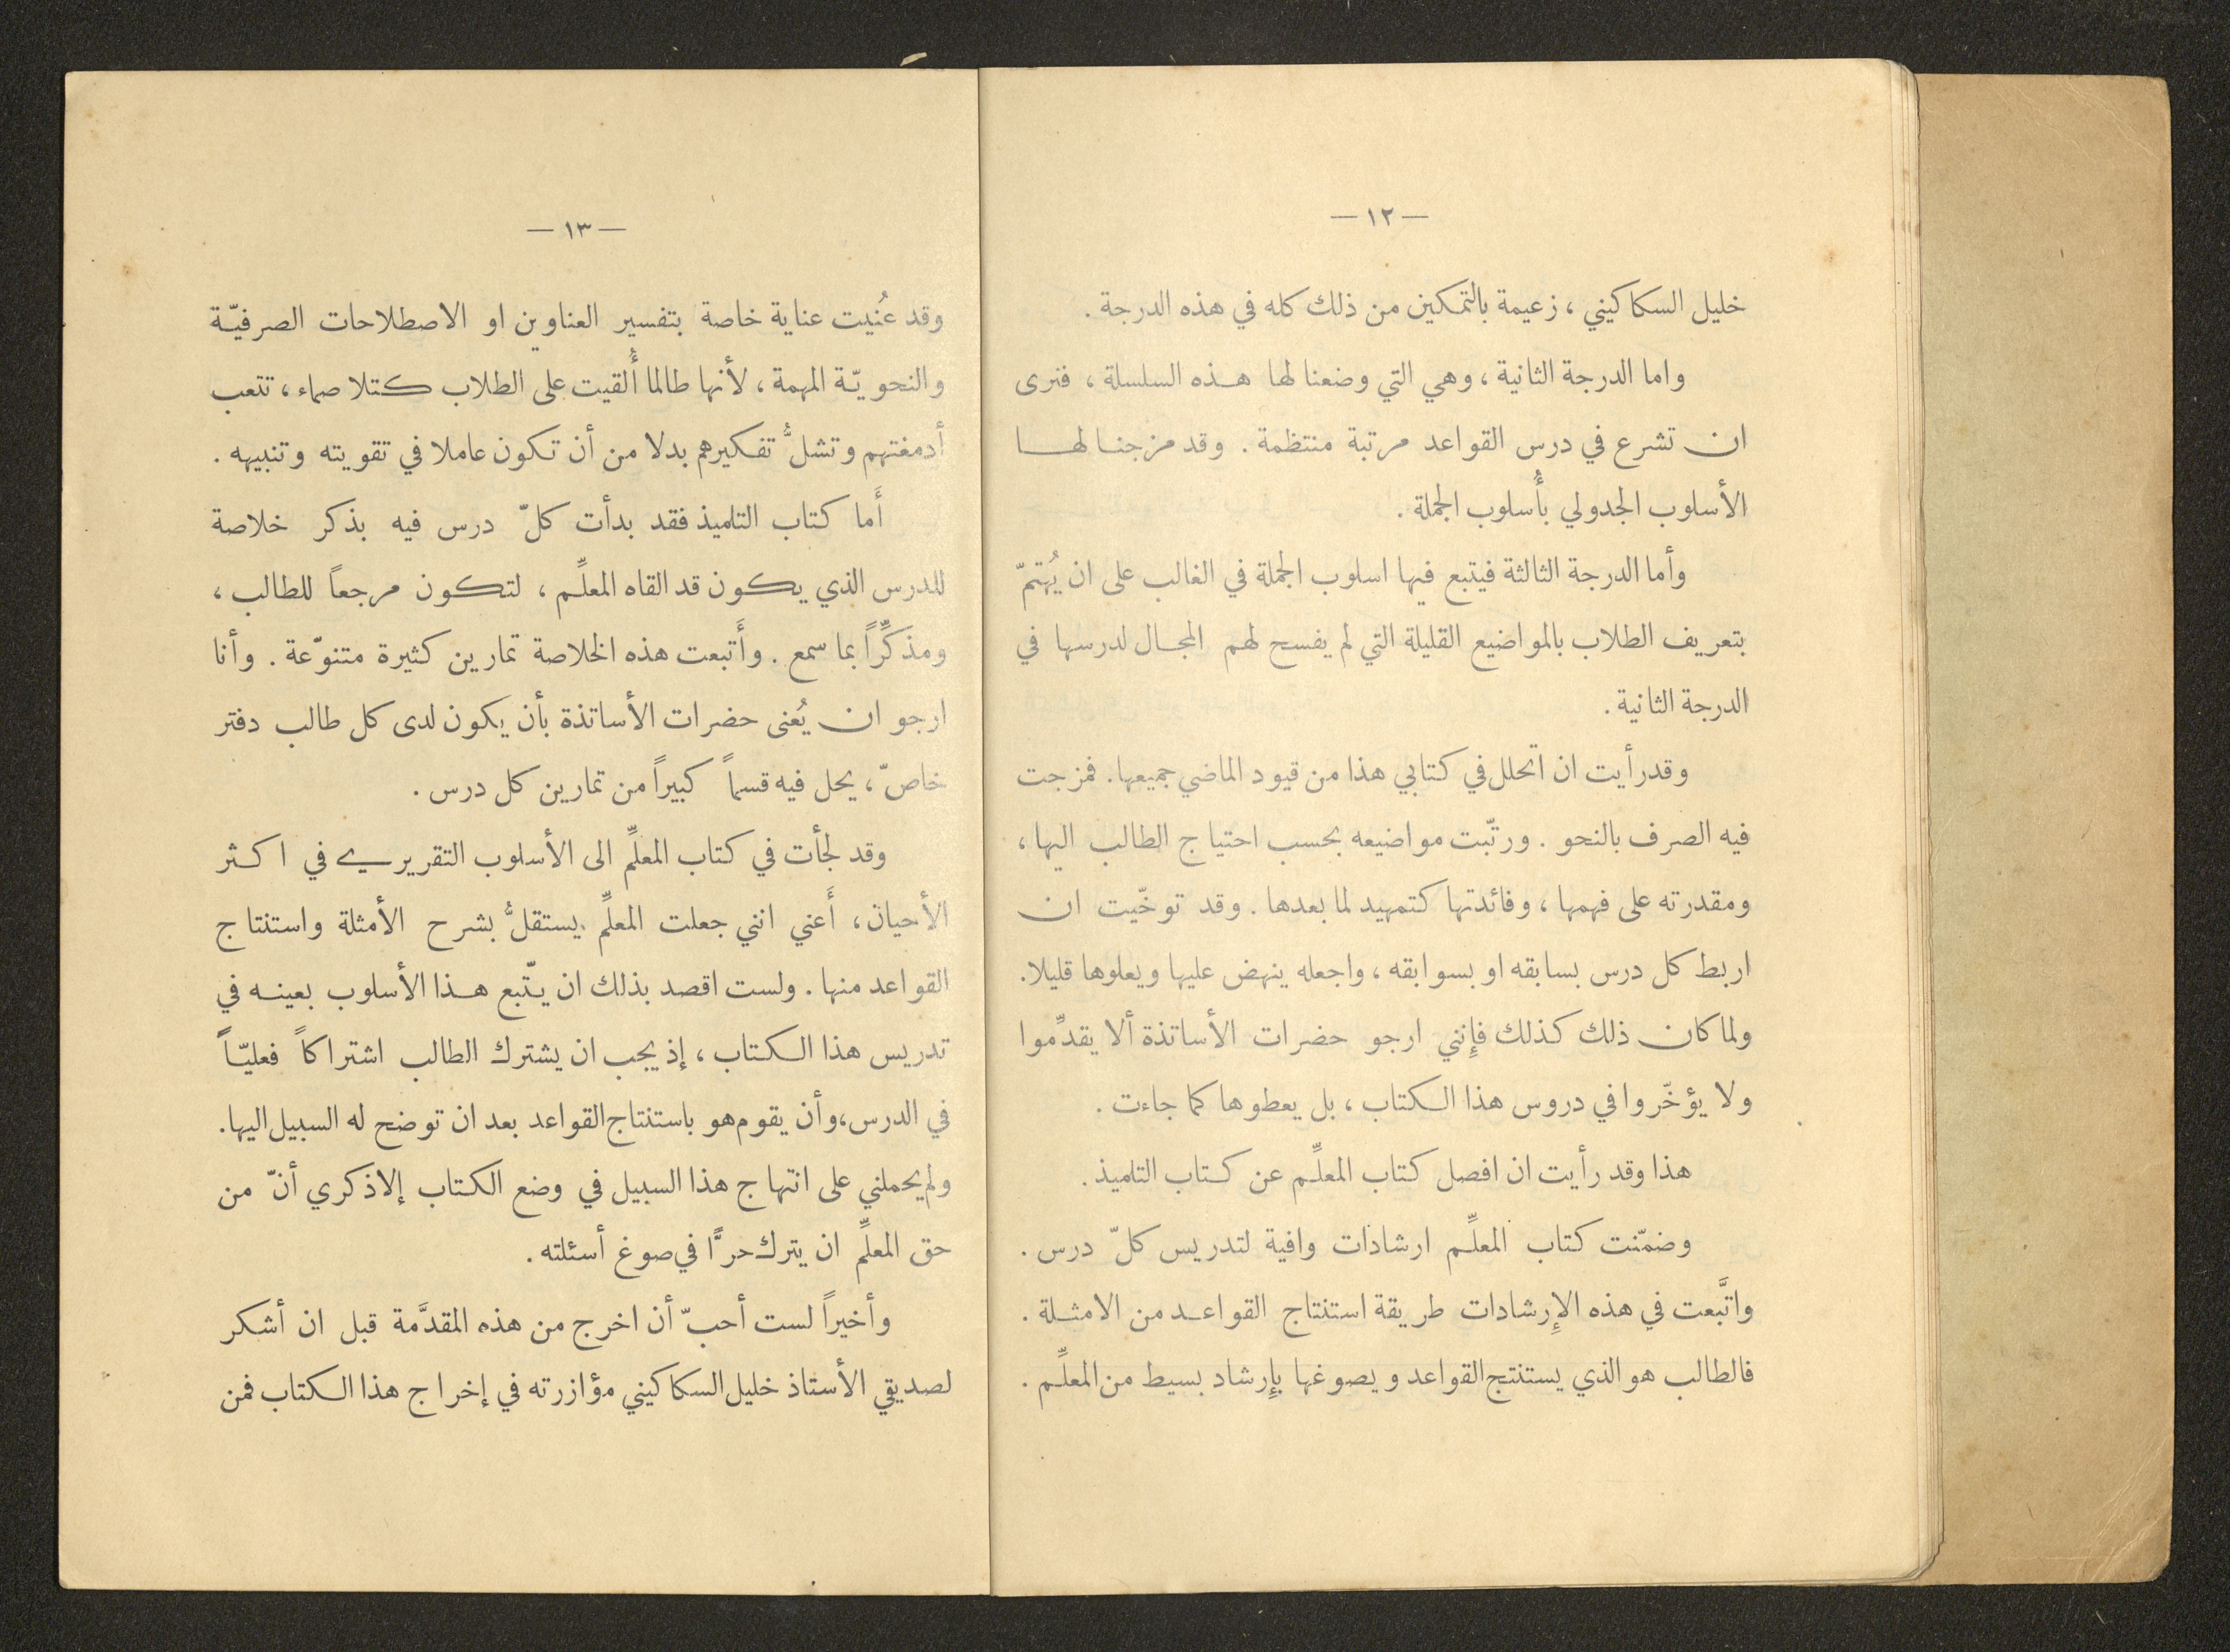 — ١٢ —
خليل السكاكيني ، زعيمة بالتمكين من ذلك كله في هذه الدرجة .
واما الدرجة الثانية ، وهي التي وضعنا لها هـذه السلسلة ، فنرى
ان تشرع في درس القواعد مرتبة منتظمة . وقد مزجنـا لهـا
الأسلوب الجدولي بأُسلوب الجملة .
وأما الدرجة الثالثة فيتبع فيها اسلوب الجملة في الغالب على ان يُهتمّ
بتعريف الطلاب بالمواضيع القليلة التي لم يفسح لهم المجـال لدرسها في
الدرجة الثانية .
وقد رأيت ان اتحلل في كتابي هذا من قيود الماضي جميعها . فمزجت
فيه الصرف بالنحو . ورتّبت مواضيعه بحسب احتياج الطالب اليها ،
ومقدرته على فهمها ، وفائدتها كتمهيد لما بعدها . وقد توخّيت ان
اربط كل درس بسابقه او بسوابقه ، واجعله ينهض عليها ويعلوها قليلا .
ولما كان ذلك كذلك فإِنني ارجو حضرات الأساتذة ألا يقدِّموا
ولا يؤخّروا في دروس هذا الكتاب ، بل يعطوها كما جاءت .
هذا وقد رأيت ان افصل كتاب المعلِّم عن كتاب التلميذ .
وضمّنت كتاب المعلِّم ارشادات وافية لتدريس كلّ درس .
واتَّبعت في هذه الإِرشادات طريقة استنتاج القواعـد من الامثـلة .
فالطالب هو الذي يستنتج القواعد ويصوغها بإِرشاد بسيط من المعلِّم .
— ١٣ —
وقد عُنيت عناية خاصة بتفسير العناوين او الاصطلاحات الصرفيّـة
والنحويّـة المهمة ، لأنها طالما أُلقيت على الطلاب كتلا صماء ، تتعب
أدمغتهم وتشلُّ تفكيرهم بدلا من أن تكون عاملا في تقويته وتنبيهه .
أَما كتاب التلميذ فقد بدأت كلّ درس فيه بذكر خلاصة
للدرس الذي يكون قد القاه المعلِّم ، لتكون مرجعاً للطالب ،
ومذكِّراً بما سمع . وأَتبعت هذه الخلاصة تمارين كثيرة متنوّعة . وأنا
ارجو ان يُعنى حضرات الأساتذة بأن يكون لدى كل طالب دفتر
خاصّ ، يحل فيه قسماً كبيراً من تمارين كل درس .
وقد لجأت في كتاب المعلِّم الى الأسلوب التقريري في اكثر
الأحيان ، أَعني انني جعلت المعلِّم يستقلُّ بشرح الأمثلة واستنتاج
القواعد منها . ولست اقصد بذلك ان يتّبع هـذا الأسلوب بعينـه في
تدريس هذا الكتاب ، إذ يجب ان يشترك الطالب اشتراكاً فعليّـاً
في الدرس ، وأن يقوم هو باستنتاج القواعد بعد ان توضح له السبيل اليها .
ولم يحملني على انتهاج هذا السبيل في وضع الكتاب إلا ذكري أنّ من
حق المعلِّم ان يترك حرًّا في صوغ أسئلته .
وأخيراً لست أحبّ أن اخرج من هذه المقدَّمة قبل ان أشكر
لصديقي الأستاذ خليل السكاكيني مؤازرته في إخراج هذا الكتاب فمن